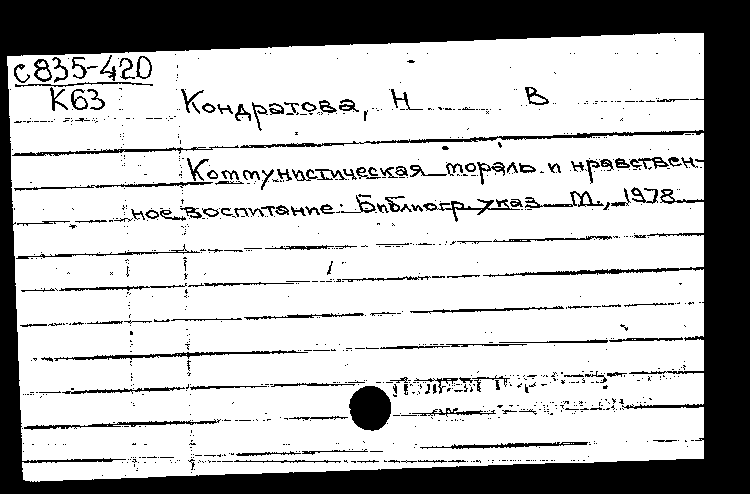 с835-420
К63
Кондратова, Н В
Коммунистическая мораль и нравствен-
ное воспитание: Библиогр. указ М., 1978